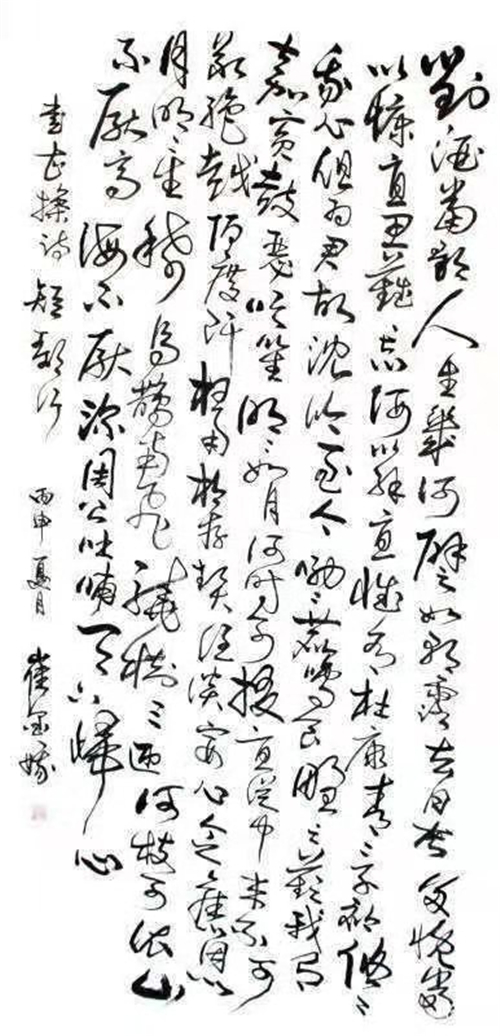 對酒當歌人生幾何譬如朝露去日苦多慨當
以慷憂思難忘何以解憂惟有杜康青々子衿悠々
我心但為君故沈吟至今呦々鹿鳴食野之苹我有
嘉賓鼓瑟吹笙明々如月何時可掇憂從中來不可
斷絕越陌度阡枉用相存契闊談宴心念舊恩
月明星稀烏鵲南飛繞樹三匝何枝可依山
不厭高海不厭深周公吐哺天下歸心
書曹操詩短歌行 丙申夏月 崔金